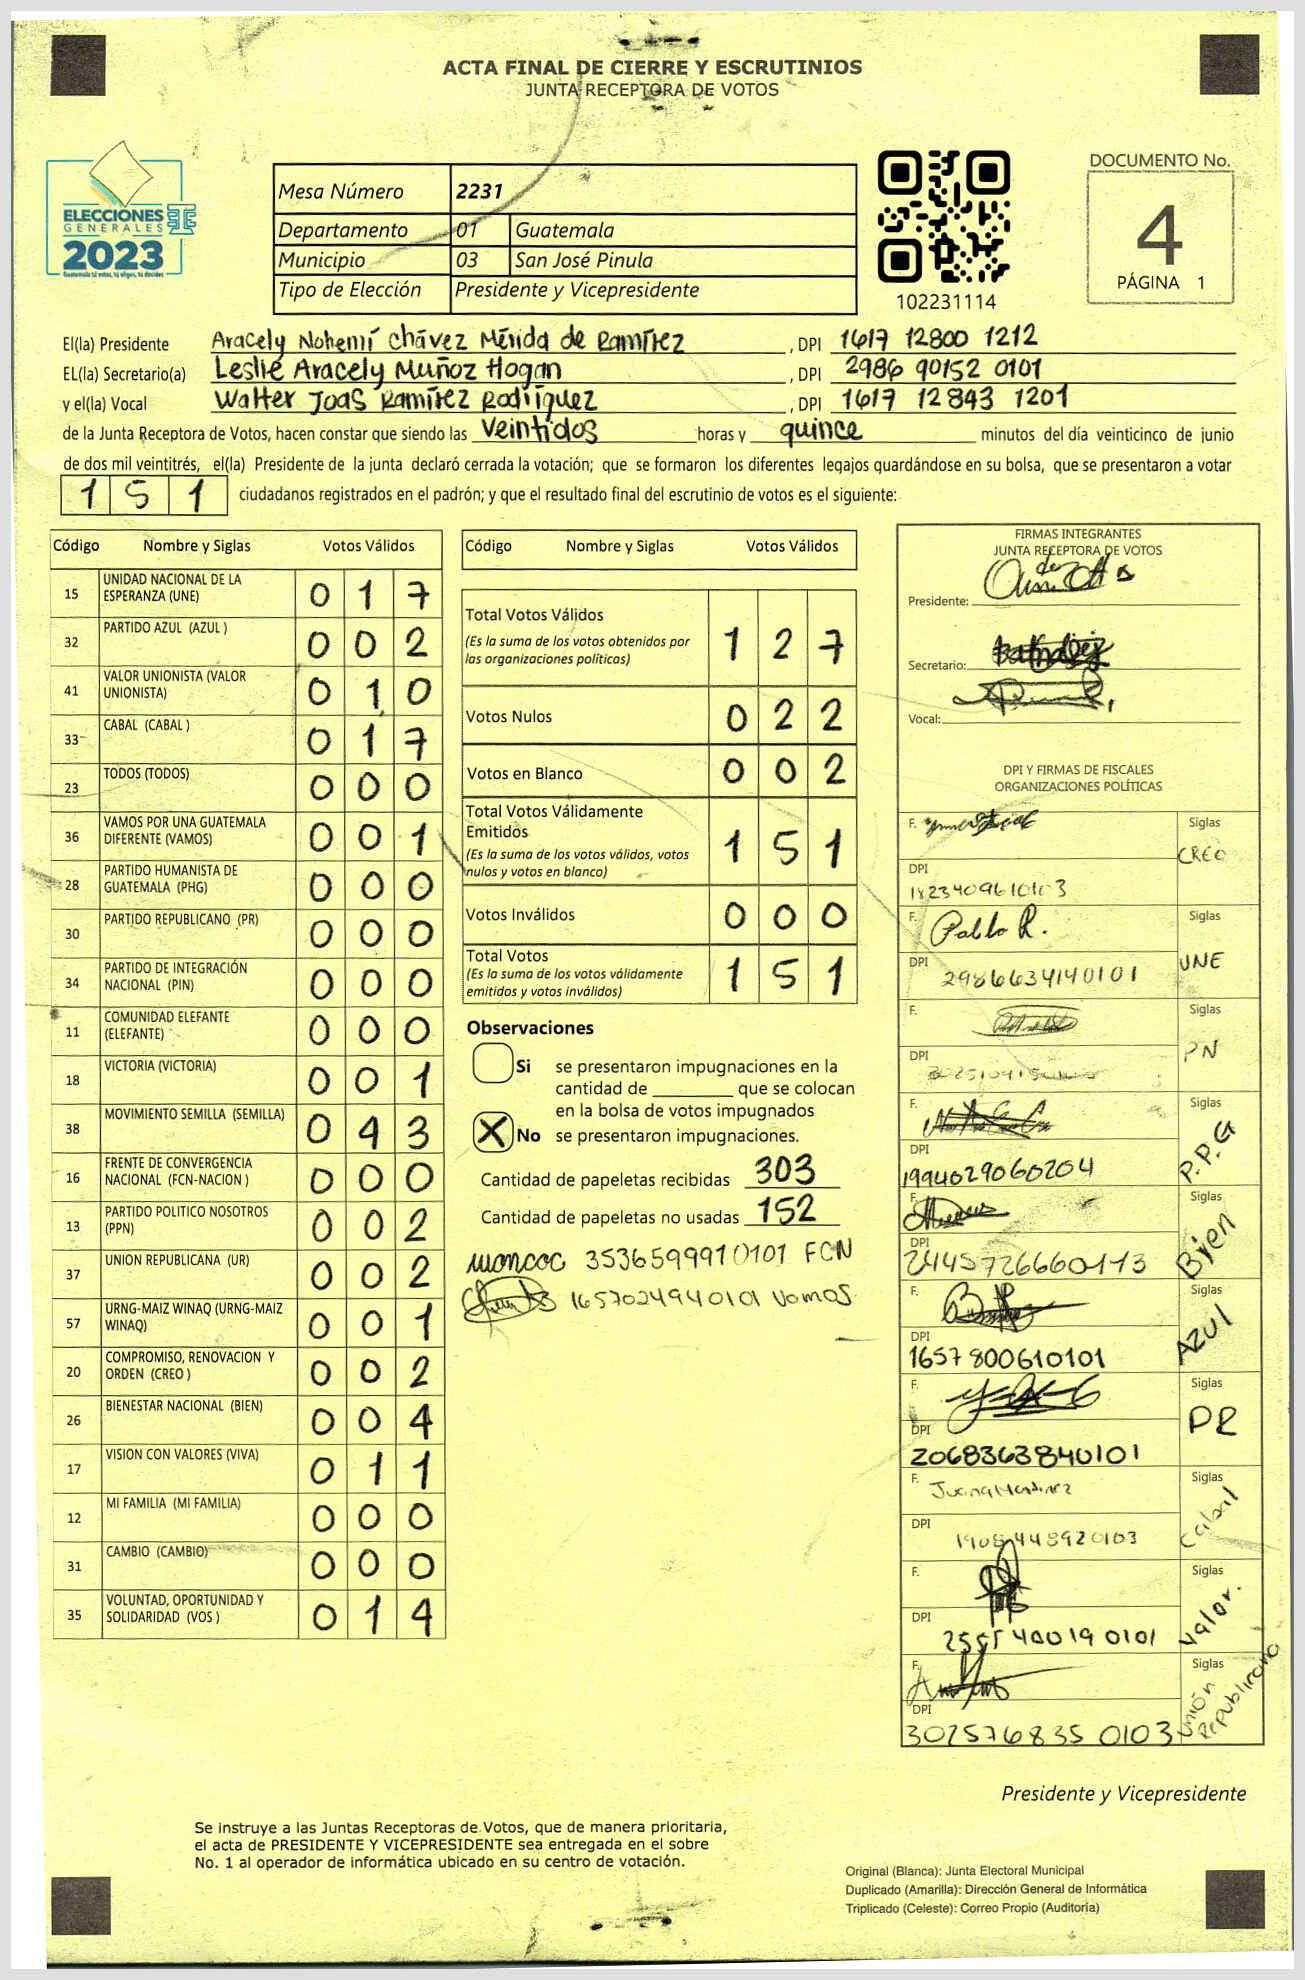 ACTA FINAL DE CIERRE Y ESCRUTINIOS
JUNTA RECEPTORA DE VOTOS
ELECCIONES
GENERALES
2023
Guatemala tú votas, tú eliges, tú decides
Mesa Número 2231
Departamento 01 Guatemala
Municipio 03 San José Pinula
Tipo de Elección Presidente y Vicepresidente
102231114
DOCUMENTO No.
4
PÁGINA 1
El(la) Presidente Aracely Nohemí Chávez Mérida de Ramírez, DPI 1617 12800 1212
EL(la) Secretario(a) Leslie Aracely Muñoz Hogan, DPI 2986 90152 0101
y el(la) Vocal Walter Joas Ramírez Rodríguez, DPI 1617 12843 1201
de la Junta Receptora de Votos, hacen constar que siendo las Veintidos horas y quince minutos del día veinticinco de junio
de dos mil veintitrés, el(la) Presidente de la junta declaró cerrada la votación; que se formaron los diferentes legajos guardándose en su bolsa, que se presentaron a votar
151 ciudadanos registrados en el padrón; y que el resultado final del escrutinio de votos es el siguiente:
Código Nombre y Siglas Votos Válidos
15 UNIDAD NACIONAL DE LA ESPERANZA (UNE) 017
32 PARTIDO AZUL (AZUL ) 002
41 VALOR UNIONISTA (VALOR UNIONISTA) 010
33 CABAL (CABAL ) 017
23 TODOS (TODOS) 000
36 VAMOS POR UNA GUATEMALA DIFERENTE (VAMOS) 001
28 PARTIDO HUMANISTA DE GUATEMALA (PHG) 000
30 PARTIDO REPUBLICANO (PR) 000
34 PARTIDO DE INTEGRACIÓN NACIONAL (PIN) 000
11 COMUNIDAD ELEFANTE (ELEFANTE) 000
18 VICTORIA (VICTORIA) 001
38 MOVIMIENTO SEMILLA (SEMILLA) 043
16 FRENTE DE CONVERGENCIA NACIONAL (FCN-NACION ) 000
13 PARTIDO POLITICO NOSOTROS (PPN) 002
37 UNION REPUBLICANA (UR) 002
57 URNG-MAIZ WINAQ (URNG-MAIZ WINAQ) 001
20 COMPROMISO, RENOVACION Y ORDEN (CREO ) 002
26 BIENESTAR NACIONAL (BIEN) 004
17 VISION CON VALORES (VIVA) 011
12 MI FAMILIA (MI FAMILIA) 000
31 CAMBIO (CAMBIO) 000
35 VOLUNTAD, OPORTUNIDAD Y SOLIDARIDAD (VOS ) 014
Código Nombre y Siglas Votos Válidos
Total Votos Válidos 127
(Es la suma de los votos obtenidos por
las organizaciones políticas)
Votos Nulos 022
Votos en Blanco 002
Total Votos Válidamente
Emitidos 151
(Es la suma de los votos válidos, votos
nulos y votos en blanco)
Votos Inválidos 000
Total Votos 151
(Es la suma de los votos válidamente
emitidos y votos inválidos)
Observaciones
Si se presentaron impugnaciones en la
cantidad de ________ que se colocan
en la bolsa de votos impugnados
X No se presentaron impugnaciones.
Cantidad de papeletas recibidas 303
Cantidad de papeletas no usadas 152
3536599910101 FCN
1657024940101 Vamos
FIRMAS INTEGRANTES
JUNTA RECEPTORA DE VOTOS
Presidente:
Secretario:
Vocal:
DPI Y FIRMAS DE FISCALES
ORGANIZACIONES POLÍTICAS
F. Siglas
CREO
DPI
1823409610103
F. Pablo R. Siglas
UNE
DPI
2986634140101
F. Siglas
PN
DPI
F. Siglas
P.P.G
DPI
1994029060204
F. Siglas
Bien
DPI
2445726660113
F. Siglas
Azul
DPI
1657800610101
F. Siglas
PR
DPI
2068363840101
F. Juana Martinez Siglas
Cabal
DPI
1908448920103
F. Siglas
Valor.
DPI
2555400190101
F. Siglas
Unión
Republicana
DPI
3025768350103
Presidente y Vicepresidente
Se instruye a las Juntas Receptoras de Votos, que de manera prioritaria,
el acta de PRESIDENTE Y VICEPRESIDENTE sea entregada en el sobre
No. 1 al operador de informática ubicado en su centro de votación.
Original (Blanca): Junta Electoral Municipal
Duplicado (Amarilla): Dirección General de Informática
Triplicado (Celeste): Correo Propio (Auditoría)